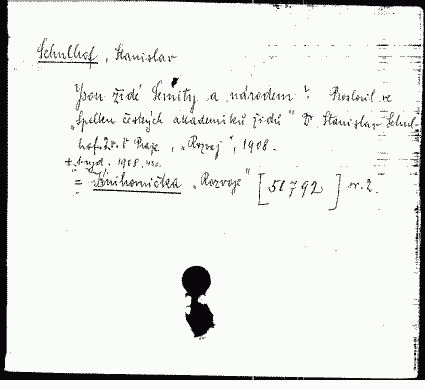 Schulhof, Stanislav
Jsou židé Semity a národem? Proslovil ve
"Spolku českých akademiků židů" Dr Stanislav Schul-
hof. 2. v. V Praze, "Rozvoj", 1908.
1908
= Knihovnička "Rozvoje" [51792] nr. 2.